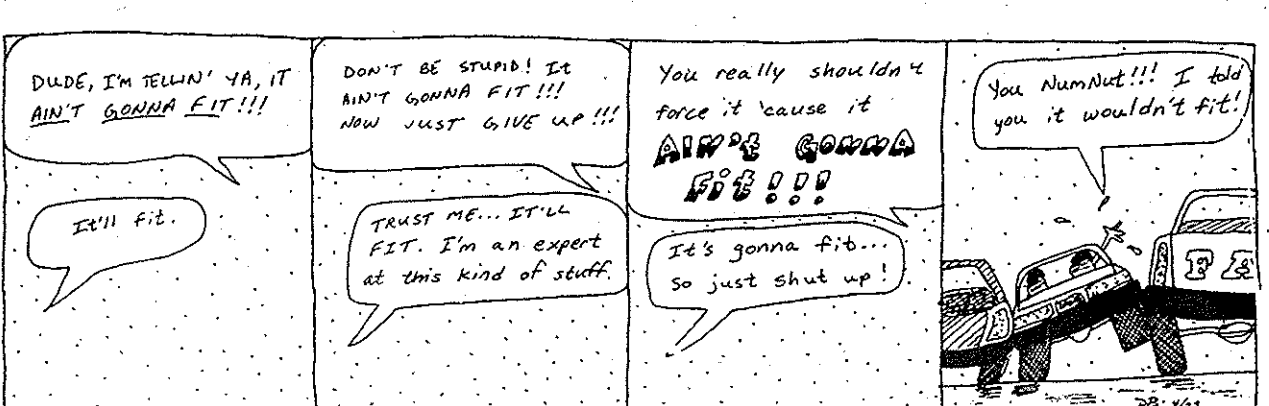 DUDE, I'M TELLIN' YA, IT
AIN'T GONNA FIT!!!
It'll fit.
DON'T BE STUPID! It
AIN'T GONNA FIT!!!
NOW JUST GIVE UP!!!
TRUST ME... IT'LL
FIT. I'm an expert
at this kind of stuff.
You really shouldn't
force it 'cause it
AIN't GONNA
Fit!!!
It's gonna fit...
so just shut up!
You NumNut!!! I told
you it wouldn't fit!